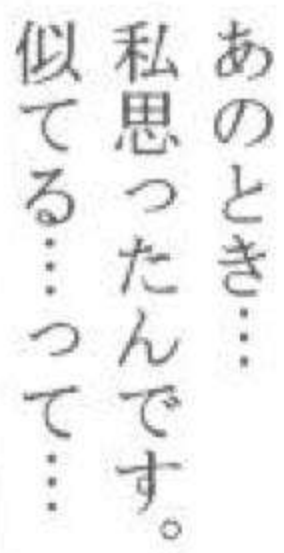 あのとき…
私思ったんです。
似てる…って…